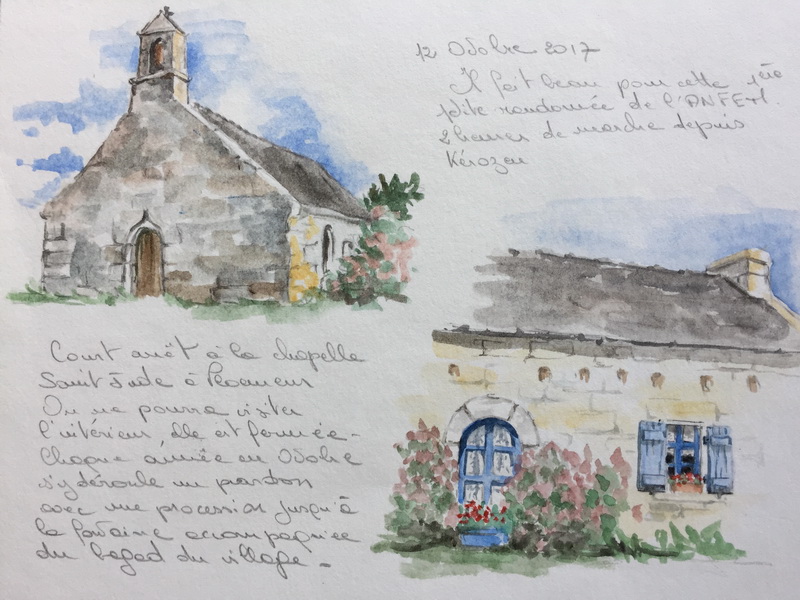 12 Octobre 2017
Il fait beau pour cette 1ère
ptite randonnée de l'ANFEM.
2 heures de marche depuis
Kérozen
Court arrêt à la chapelle
Saint Jude à Ploemeur
On ne pourra visiter
l'intérieur, elle est fermée.
Chaque année en Octobre
s'y déroule un pardon
avec une procession jusqu'à
la fontaine accompagnée
du bagad du village.